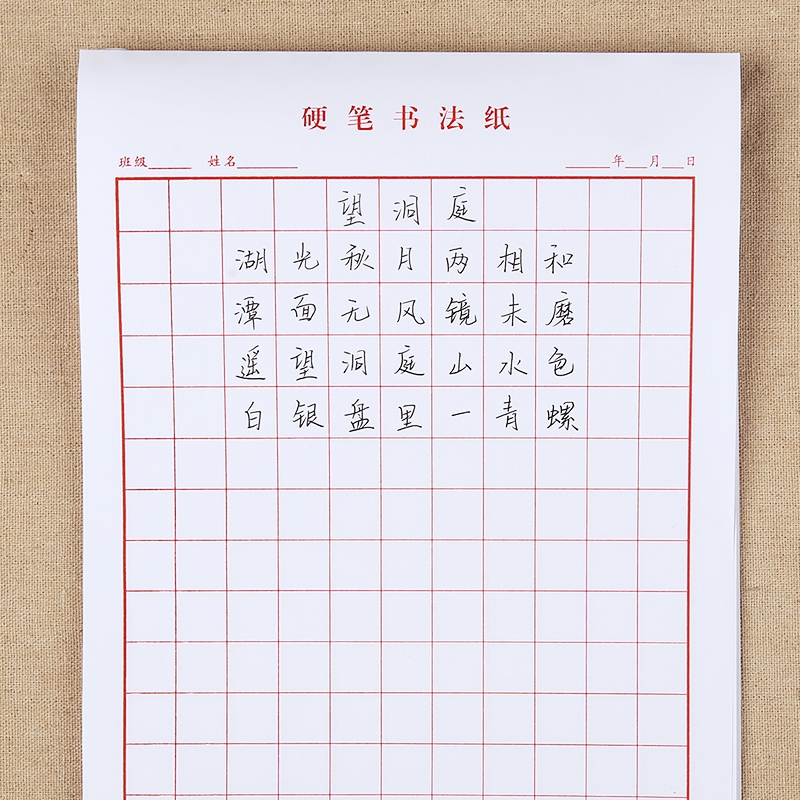 硬笔书法纸
班级 姓名 年 月 日
望洞庭
湖光秋月两相和
潭面无风镜未磨
遥望洞庭山水色
白银盘里一青螺